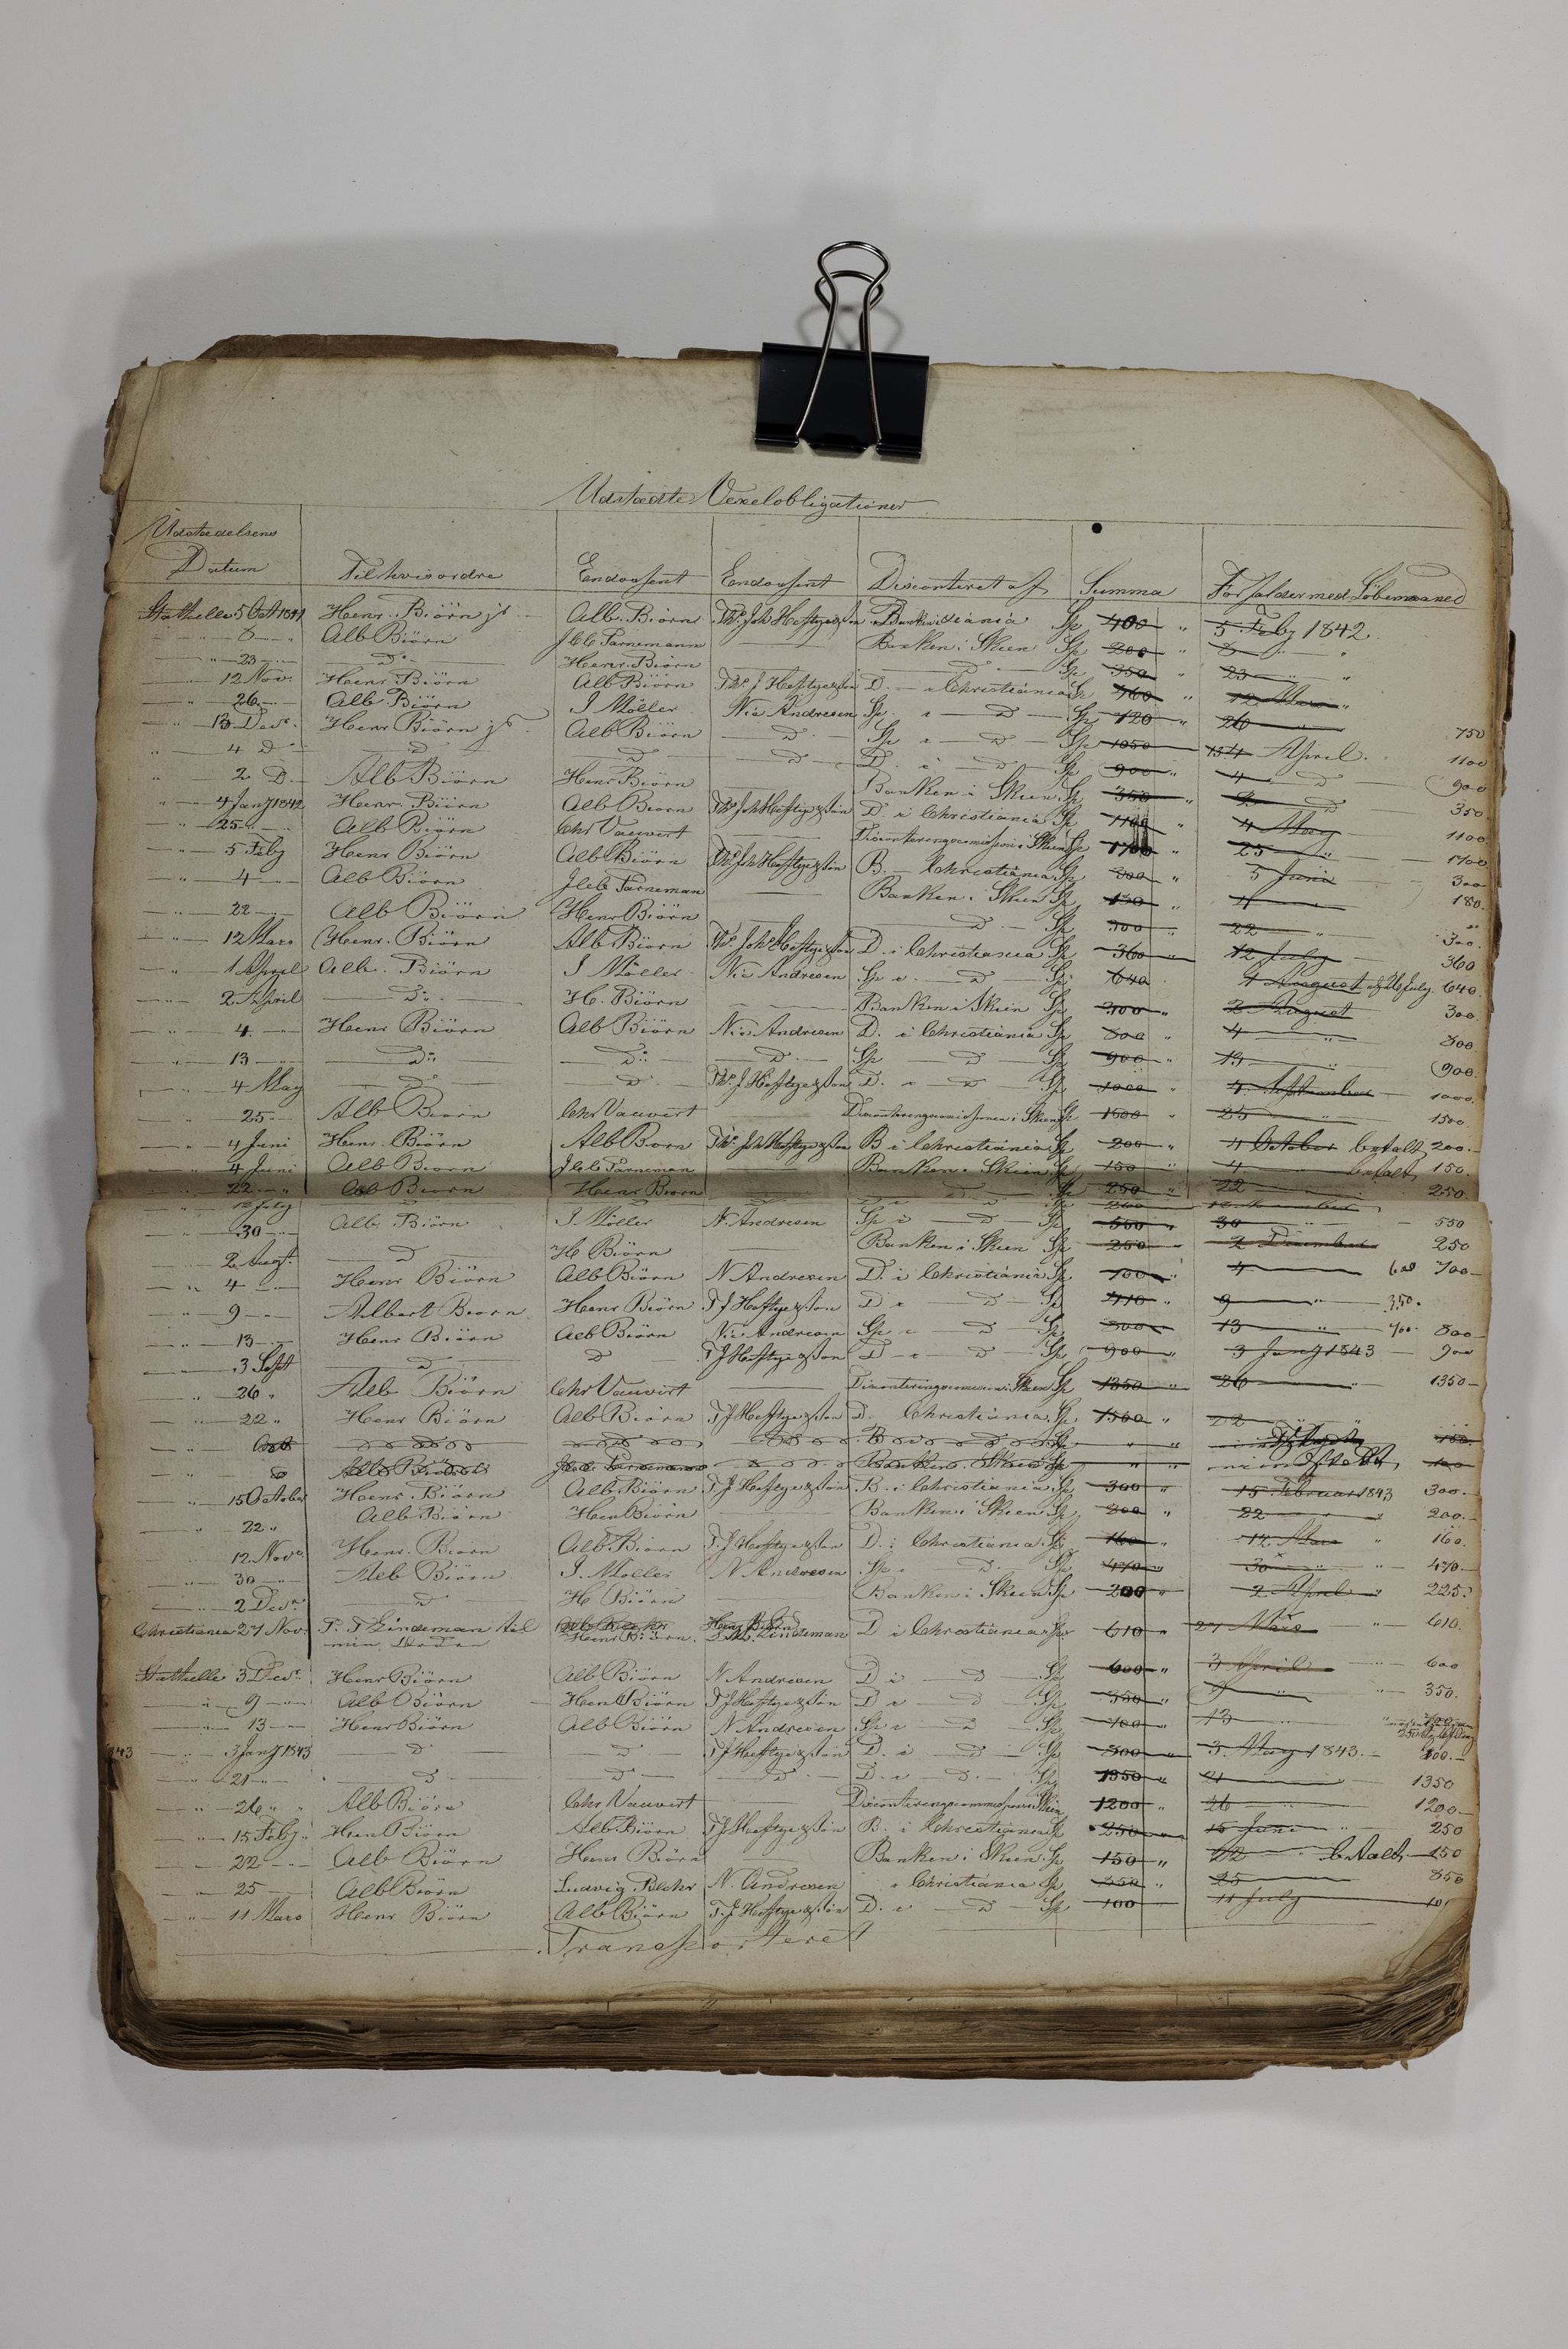 Udstædte Vexelobligationer
Udstædelsens Datum Til hvis ordre Endossent Endossent Disconteret af Summa Forfalder med Löbemaaned
Stathelle 5 Octr 1841 Henr. Biörn jr Alb. Biörn Ths. Joh Heftye & Sön Banken i Christiania Sp 400 " 5 Feby 1842
" 8 " Alb Biörn J Chr Tarnemann Banken i Skien Sp 200 " 8 " "
" 23 Do Henr. Biörn D Sp 350 " 23 " "
" 12 Nov. Henr Biörn Alb Biörn Ths J Heftye & Sön D. i Christiania Sp 460 " 12 Mars "
" 26 Alb Biörn J Möller Nic Andresen Sp i D Sp 720 " 26
" 13 Decr. Henr Biörn jr Alb Biörn D Sp i D Sp 1050 13 April 750
" 4 D D D D D. i D Sp 900 " 4 D 1100
" 2 D. Alb Biörn Henr Biörn Banken i Skien Sp 350 " 2 D 900
" 4 Jany 1842 Henr. Biörn Alb Biörn Ths Joh Heftye & Sön D i Christiania Sp 1100 " 4 May 350
" 25 " Alb Biörn Chr Vauvert Disconteringscomissionen i Skien Sp 1700 " 25 " 1100
" 5 Feby Henr Biörn Alb Biörn Ths Joh Heftye & Sön B Christiania Sp 300 " 5 Juni 1700
" 4 Alb Biörn J Chr Tarneman Banken i Skien Sp 180 " 4 " 300
" 22 Alb Biörn Henr Biörn D. Sp 300 " 22 " 180
" 12 Mars Henr. Biörn Alb Biörn Ths. Joh Heftye & Sön D i Christiania Sp 360 " 12 July 300
" 1 April Alb. Biörn J Möller Nic Andresen Sp i D Sp 640 1 August 360
" 2 April Do H. Biörn Banken i Skien Sp 300 " 2 August 640
" 4 Henr Biörn Alb Biörn Nic Andresen D. i Christiania Sp 800 " 4 " 300
" 13 Do Do D. Sp D Sp 900 " 13 " 800
" 4 May D D Ths. J Heftye & Sön D. i D Sp 1000 " 4 September 900
" 25 Alb Biörn Chr Vauvert Disconteringscomissionen i Skien Sp 1500 " 25 " 1000
" 4 Juni Henr. Biörn Alb Biörn Ths. Joh Heftye & Sön B i Christiania Sp 200 " 4 October betalt 200
" 4 Juni Alb Biörn J Chr Tarneman Banken i Skien Sp 150 " 4 " betalt 150
" 22 " Alb Biörn Henr Biörn D Sp 250 " 22 250
12 July
" 30 Alb. Biörn J Möller N. Andresen Sp i D Sp 550 " 30 550
2 Augt. D H Biörn Banken i Skien Sp 250 " 2 December 250
" 4 Henr Biörn Alb Biörn N Andresen D. i Christiania Sp 700 " 4 600 700
" 9 Albert Biörn Henr Biörn T J Heftye & Sön D i D Sp " 9 " 350
" 13 Henr Biörn Alb Biörn Nic Andresen Sp i D Sp 800 " 13 " 700 800
" 3 Sept D D T J Heftye & Sön D i D Sp 900 " 3 Jany 1843 900
" 26 " Alb Biörn Chr Vauvert Disconteringscomissionen i Skien Sp 1350 " 26 " 1350
" 22 " Henr Biörn Alb Biörn T J Heftye & Sön D. Christiania Sp 1500 " 22 " "
Oct
Alb Biörn Banken i Skien Sp
" 15 October Henr. Biörn Alb Biörn T J Heftye & Sön B. i Christiania Sp 300 " 15 Februar 1843 300
" 22 " Alb Biörn Henr Biörn Banken i Skien Sp 200 " 22 " " 200
12 Novr. Henr. Biörn Alb. Biörn T J Heftye & Sön D. i Christiania Sp 160 " 12 Mars " 160
" 30 Alb Biörn J. Möller N Andresen Sp. i D Sp 470 " 30 " " 470
" 2 Decr. D H Biörn Banken i Skien Sp 200 " 2 April " 225
Christiania 27 Nov. P. T Lindeman til Henr Biörn D i Christiania Sp 610 " 27 Mars " 610
min Ordre Henr Biörn. Lindeman
Stathelle 3 Decr. Henr Biörn Alb Biörn N Andresen D i D Sp 600 " 3 April " 600
" 9 Alb Biörn Henr Biörn T J Heftye & Sön D i D Sp 350 " 9 " " 350
" 13 Henr Biörn Alb Biörn N Andresen Sp i D Sp 700 " 13 " " 700
1843 " 3 Jany 1843 D D T J Heftye & Sön D. i D Sp 800 " 3 May 1843
" 21 " D D D D. i D. Sp 1350 " 21 1350
" 26 " " Alb Biörn Chr Vauvert Disconteringscommissionen i Skien 1200 " 26 " 1200
" 15 Feby Henr Biörn Alb Biörn T J Heftye & Sön B. i Christiania Sp 250 " 15 Juni " 250
" 22 " Alb Biörn Henr Biörn Banken i Skien Sp 150 " 22 betalt 150
" 25 Alb Biörn Ludvig N. Andresen i Christiania Sp 850 " 25 850
" 11 Mars Henr Biörn Alb Biörn T. J Heftye & Sön D. i D Sp 100 " 11 July
Transporteret